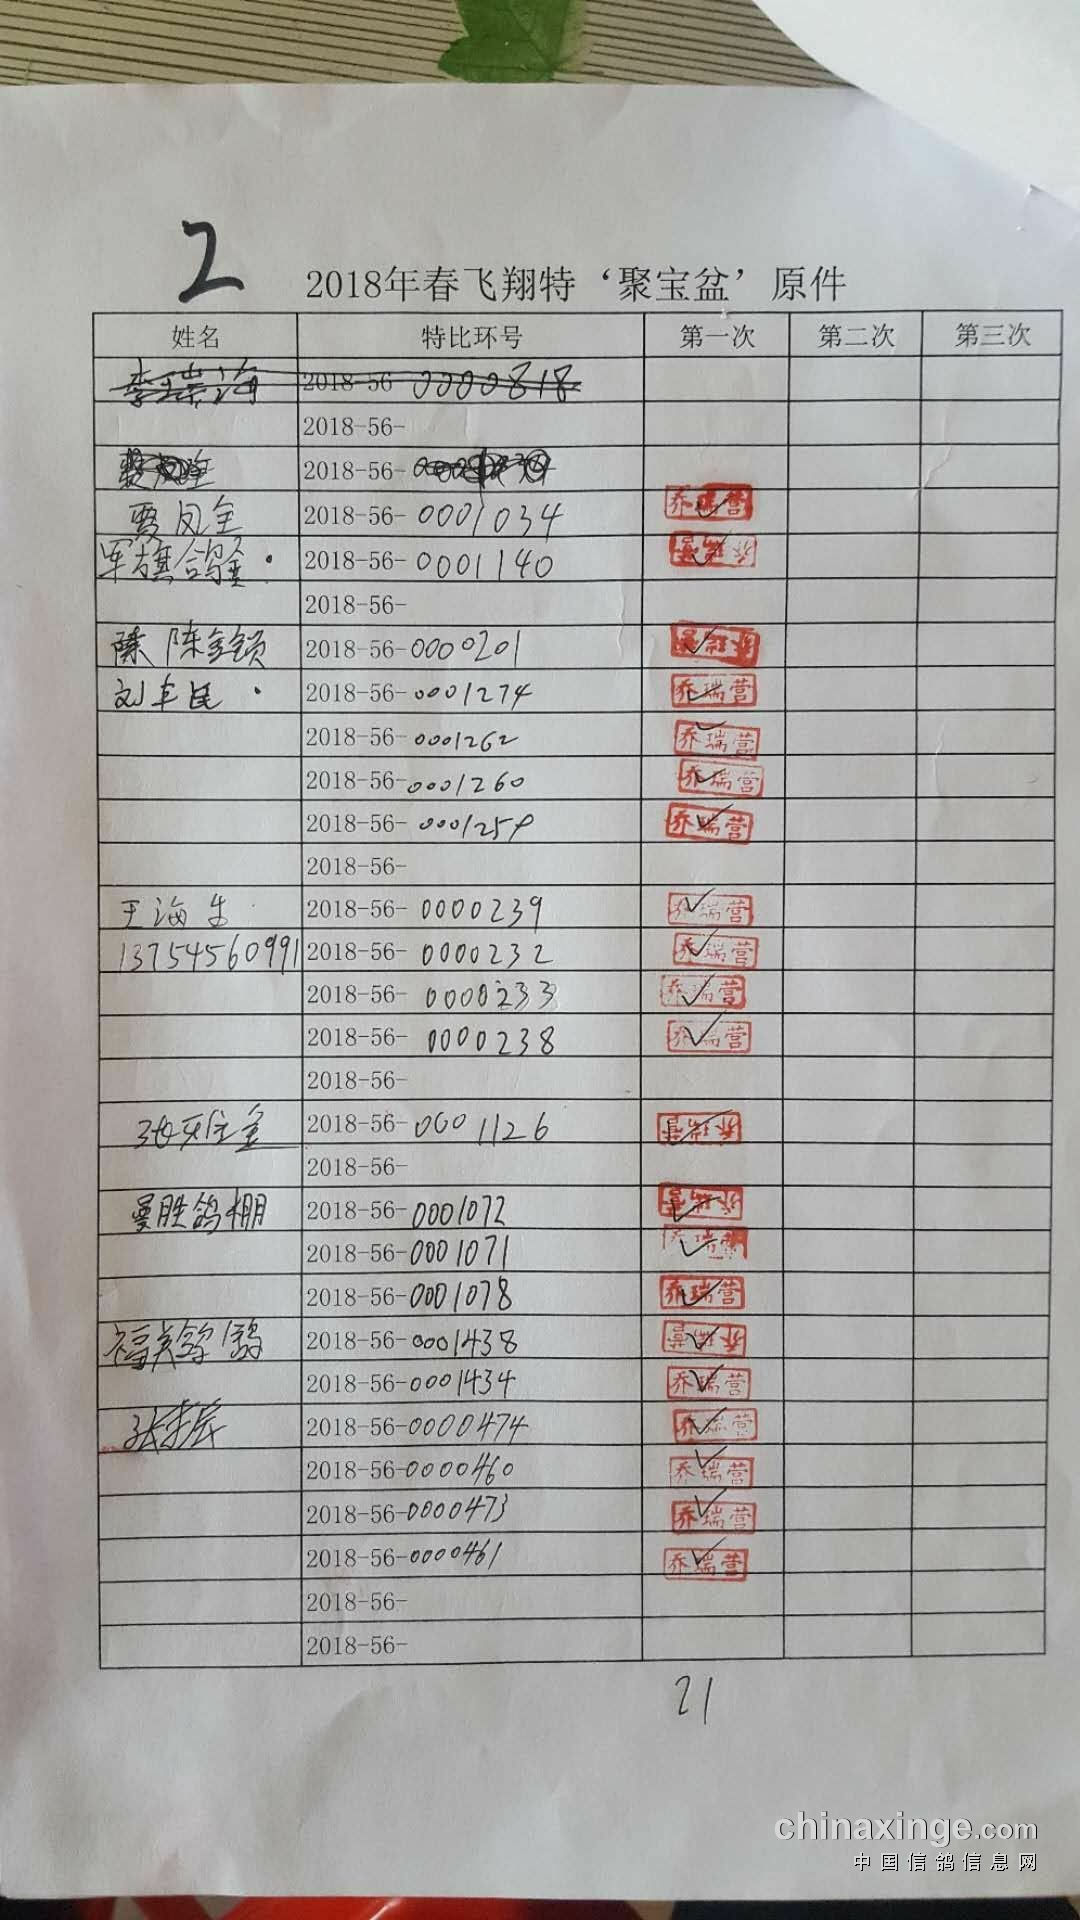 2
2018年春飞翔特‘聚宝盆’原件
姓名 特比环号 第一次 第二次 第三次
李瑞海 2018-56-0000818
2018-56-
2018-56-
贾凤全 2018-56-0001034 乔瑞营
军旗鸽 2018-56-0001140 乔瑞营
2018-56-
陈金锁 2018-56-0000201 乔瑞营
刘车民 2018-56-0001274 乔瑞营
2018-56-0001262 乔瑞营
2018-56-0001260 乔瑞营
2018-56-0001259 乔瑞营
2018-56-
王海生 2018-56-0000239 乔瑞营
13754560991 2018-56-0000232 乔瑞营
2018-56-0000233 乔瑞营
2018-56-0000238 乔瑞营
2018-56-
2018-56-0001126 乔瑞营
2018-56-
曼胜鸽棚 2018-56-0001072 乔瑞营
2018-56-0001071 乔瑞营
2018-56-0001078 乔瑞营
2018-56-0001438 乔瑞营
2018-56-0001434 乔瑞营
2018-56-0000474 乔瑞营
2018-56-0000460 乔瑞营
2018-56-0000473 乔瑞营
2018-56-0000461 乔瑞营
2018-56-
2018-56-
21
chinaxinge.com
中国信鸽信息网